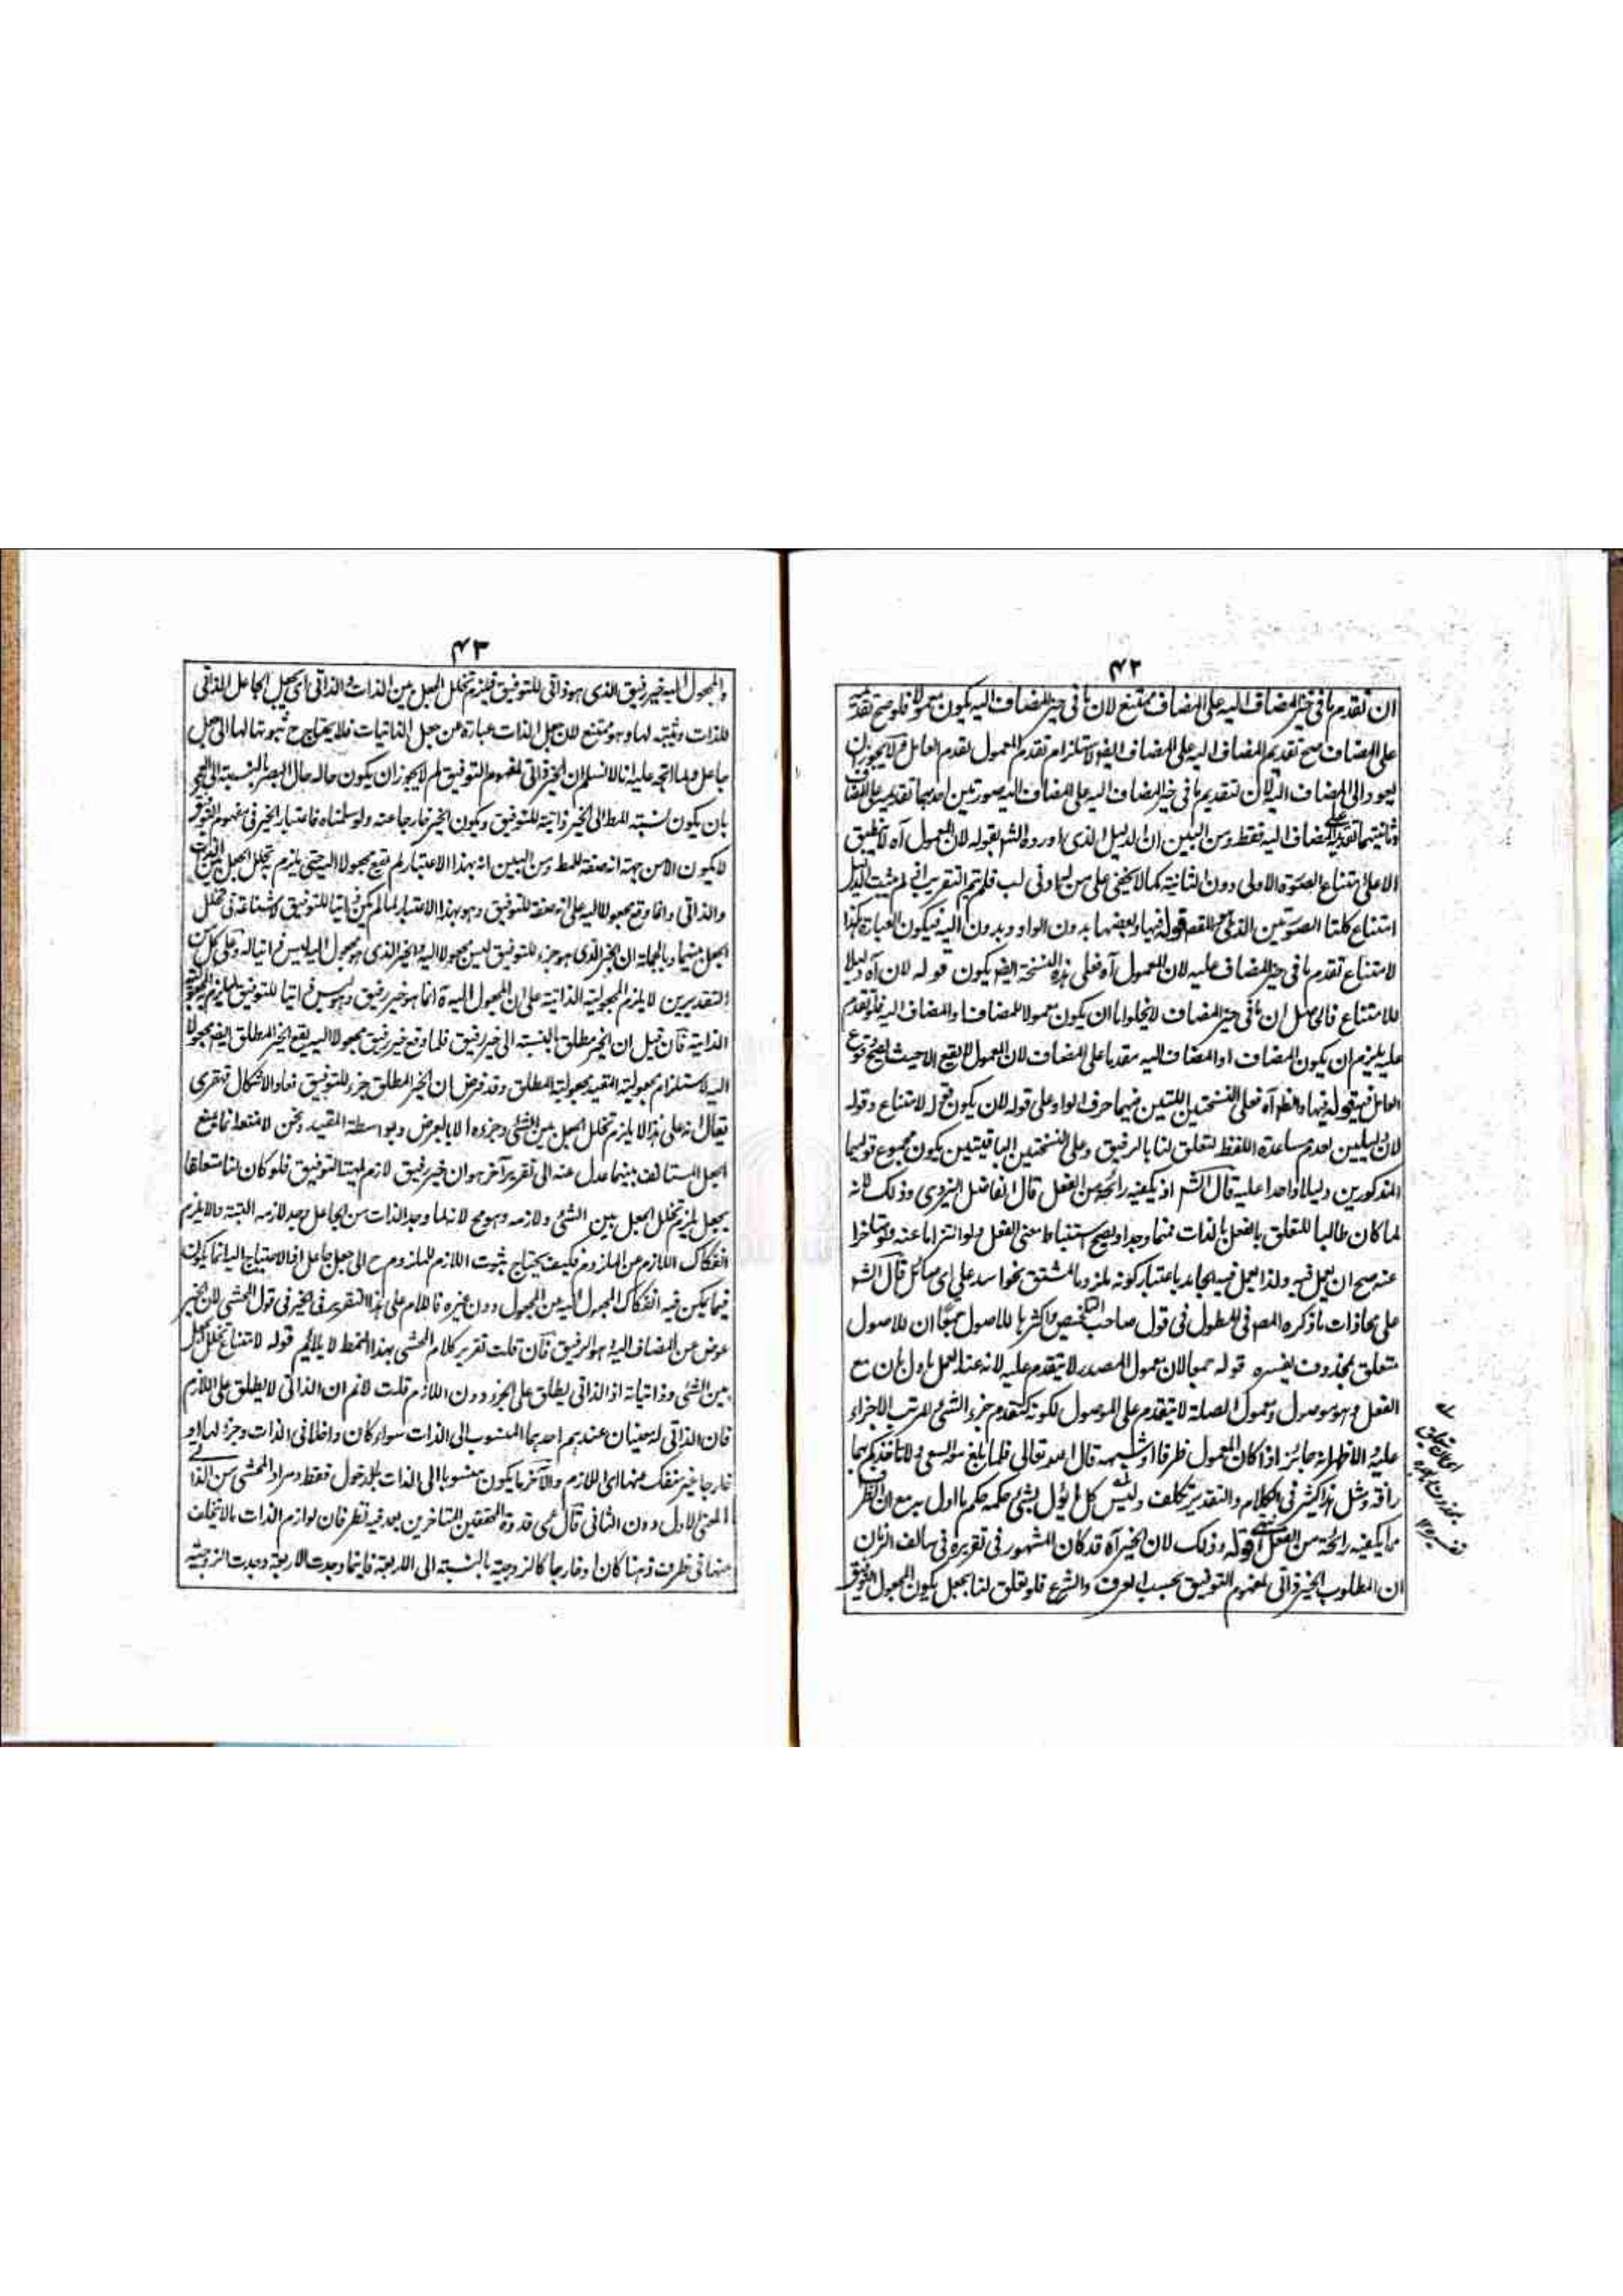 ۴۲
ان تقدم ما فی حیز المضاف الیه علی المضاف ممتنع لان ما فی حیز المضاف الیه یکون معمولا فلو صح تقدمه
علی المضاف صح تقدیم المضاف الیه علی المضاف ایضا لاستلزام تقدم المعمول تقدم العامل فلا یجوز ان
یعود الی المضاف الیه لان لتقدیم ما فی حیز المضاف الیه علی المضاف الیه صورتین احدیهما تقدیمه علی المضاف
وثانیتهما تقدیمه علی المضاف الیه فقط ومن البین ان الدلیل الذی اورده الشم بقوله لان المعمول آه لا ینطبق
الا علی امتناع الصورة الاولی دون الثانیة کما لا یخفی علی من له ادنی لب فلم یتم التقریب اذ لم یثبت الدلیل
امتناع کلتا الصورتین الذی هو المقصود قوله فیها وبعضها بدون الواو وبدون الیه فیکون العبارة هکذا
لامتناع تقدم ما فی حیز المضاف علیه لان المعمول آه فعلی هذه النسخة ایضا یکون قوله لان آه دلیلا
للامتناع فالحاصل ان ما فی حیز المضاف لا یخلو اما ان یکون معمولا للمضاف او المضاف الیه فلو تقدم
علیه یلزم ان یکون المضاف او المضاف الیه مقدما علی المضاف لان المعمول لا یقع الا حیث یصح وقوع
العامل فیه قوله فیها والظ آه فعلی النسختین اللتین فیهما حرف الواو علی قوله لان یکون قوله لامتناع وقوله
لان دلیلین لعدم مساعدة اللفظ لتعلق لنا بالرفیق وعلی النسختین الباقیتین یکون مجموع قولیهما
المذکورین دلیلا واحدا علیه قال الشم اذ یکفیه رائحة من الفعل قال الفاضل الیزدی وذلک لانه
لما کان طالبا للتعلق بالفعل بالذات فمتما وجد او یصح استنباط معنی الفعل ولو التزاما عنه ولو متاخرا
عنه صح ان یعمل فیه ولذا یعمل فیه الجامد باعتبار کونه ملزوما لمشتق نحو اسد علی ای صائل قال الشم
علی محاذات ما ذکره المصر فی المطول فی قول صاحب التلخیص واکثرها للاصول جمعا ان للاصول
متعلق بمحذوف یفسره قوله جمعا لان معمول المصدر لا یتقدم علیه لانه عند العمل ماول بان مع
الفعل وهو موصول ومعمول الصلة لا یتقدم علی الموصول لکونه کتقدم جزء الشئ المرتب الاجزاء
علیه والاظهر انه جائز اذا کان المعمول ظرفا او شبیهه قال الله تعالی فلما بلغ معه السعی ولا تاخذکم بهما
رافة ومثل هذا کثیر فی الکلام والتقدیر تکلف ولیس کل ما یؤل بشئ حکمه حکم ما اول به مع ان الظرف
مما یکفیه رائحة من الفعل انتهی قوله وذلک لان الخیر آه قد کان المشهور فی تقریره فی سالف الزمان
ان المطلوب الخیر ذاتی لمفهوم التوفیق بحسب العرف والشرع فلو تعلق لنا بجعل یکون المجعول التوفیق
۴۳
والمجعول الیه خیر رفیق الذی هو ذاتی للتوفیق فیلزم تخلل الجعل بین الذات والذاتی ای جعل الجاعل الذاتی
للذات وثبته لها وهو ممتنع لان جعل الذات عبارة عن جعل الذاتیات فلا یحتاج ح ثبوتها لها الی جعل
جاعل ولما اتجه علیه انا لا نسلم ان الخیر ذاتی لمفهوم التوفیق لم لا یجوز ان یکون حاله حال البصر بالنسبة الی العمی
بان یکون نسبة المط الی الخیر ذاتیة للتوفیق ویکون الخیر خارجا عنه ولو سلمناه فاعتبار الخیر فی مفهوم التوفیق
لا یکون الا من جهة انه صفة للمط ومن البین انه بهذا الاعتبار لم یقع مجعولا الیه حتی یلزم تخلل الجعل بین الذات
والذاتی وانما وقع مجعولا الیه علی انه صفة للتوفیق وهو بهذا الاعتبار لما لم یکن ذاتیا للتوفیق لا شناعة فی تخلل
الجعل بینهما وبالجملة ان الخیر الذی هو جزء للتوفیق لیس مجعولا الیه والخیر الذی هو مجعول الیه لیس ذاتیا له وعلی کل من
التقدیرین لا یلزم المجعولیة الذاتیة علی ان المجعول الیه ة انما هو خیر رفیق وهو لیس ذاتیا للتوفیق فلا یلزم المجعولیة
الذاتیة فآن قیل ان الخیر مطلق بالنسبة الی خیر رفیق فلما وقع خیر رفیق مجعولا الیه یقع الخیر المطلق ایضا مجعولا
الیه لاستلزام مجعولیة المقید مجعولیة المطلق وقد فرض ان الخیر المطلق جزء للتوفیق فعاد الاشکال قهقری
یقال انه علی هذا لا یلزم تخلل الجعل بین الشئ وجزءه الا بالعرض وبواسطة المقید ونحن لا نمنعه انما نمنع
الجعل المستانف بینهما عدل عنه الی تقریر آخر هو ان خیر رفیق لازم لمهیة التوفیق فلو کان لنا متعلقا
بجعل یلزم تخلل الجعل بین الشئ ولازمه وهو مح لانه لما وجد الذات من الجاعل وجد لازمه البتة والا یلزم
انفکاک اللازم عن الملزوم فکیف یحتاج ثبوت اللازم للملزوم ح الی جعل جاعل اذ الاحتیاج الیه انما یکون
فیما یمکن فیه انفکاک المجعول الیه من المجعول دون غیره فاللام علی هذا التقریر فی الخیر فی قول المحشی لان الخیر
عوض عن المضاف الیه وهو الرفیق فآن قلت تقریر کلام المحشی بهذا النمط لا یلایم قوله لامتناع تخلل الجعل
بین الشئ وذاتیاته اذ الذاتی یطلق علی الجزء دون اللازم قلت لا نم ان الذاتی لا یطلق علی اللازم
فان الذاتی له معنیان عندهم احدهما المنسوب الی الذات سواء کان داخلا فی الذات وجزء لها او
خارجا غیر منفک عنها ای اللازم والآخر ما یکون منسوبا الی الذات بالدخول فقط ومراد المحشی من الذاتی
المعنی الاول دون الثانی قال عمی قدوة المحققین المتاخرین بعد فیه نظر فان لوازم الذات ما لا یتخلف
عنها فی ظرف ذهنا کان او خارجا کالزوجیة بالنسبة الی الاربعة فاینما وجدت الاربعة وجدت الزوجیة